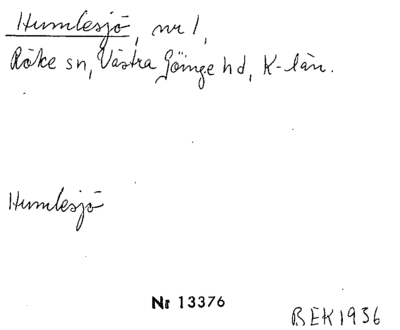 Humlesjö, nr 1,
Röke sn, Västra Göinge hd, K-län.
Humlesjö
Nr 13376
BEK1936